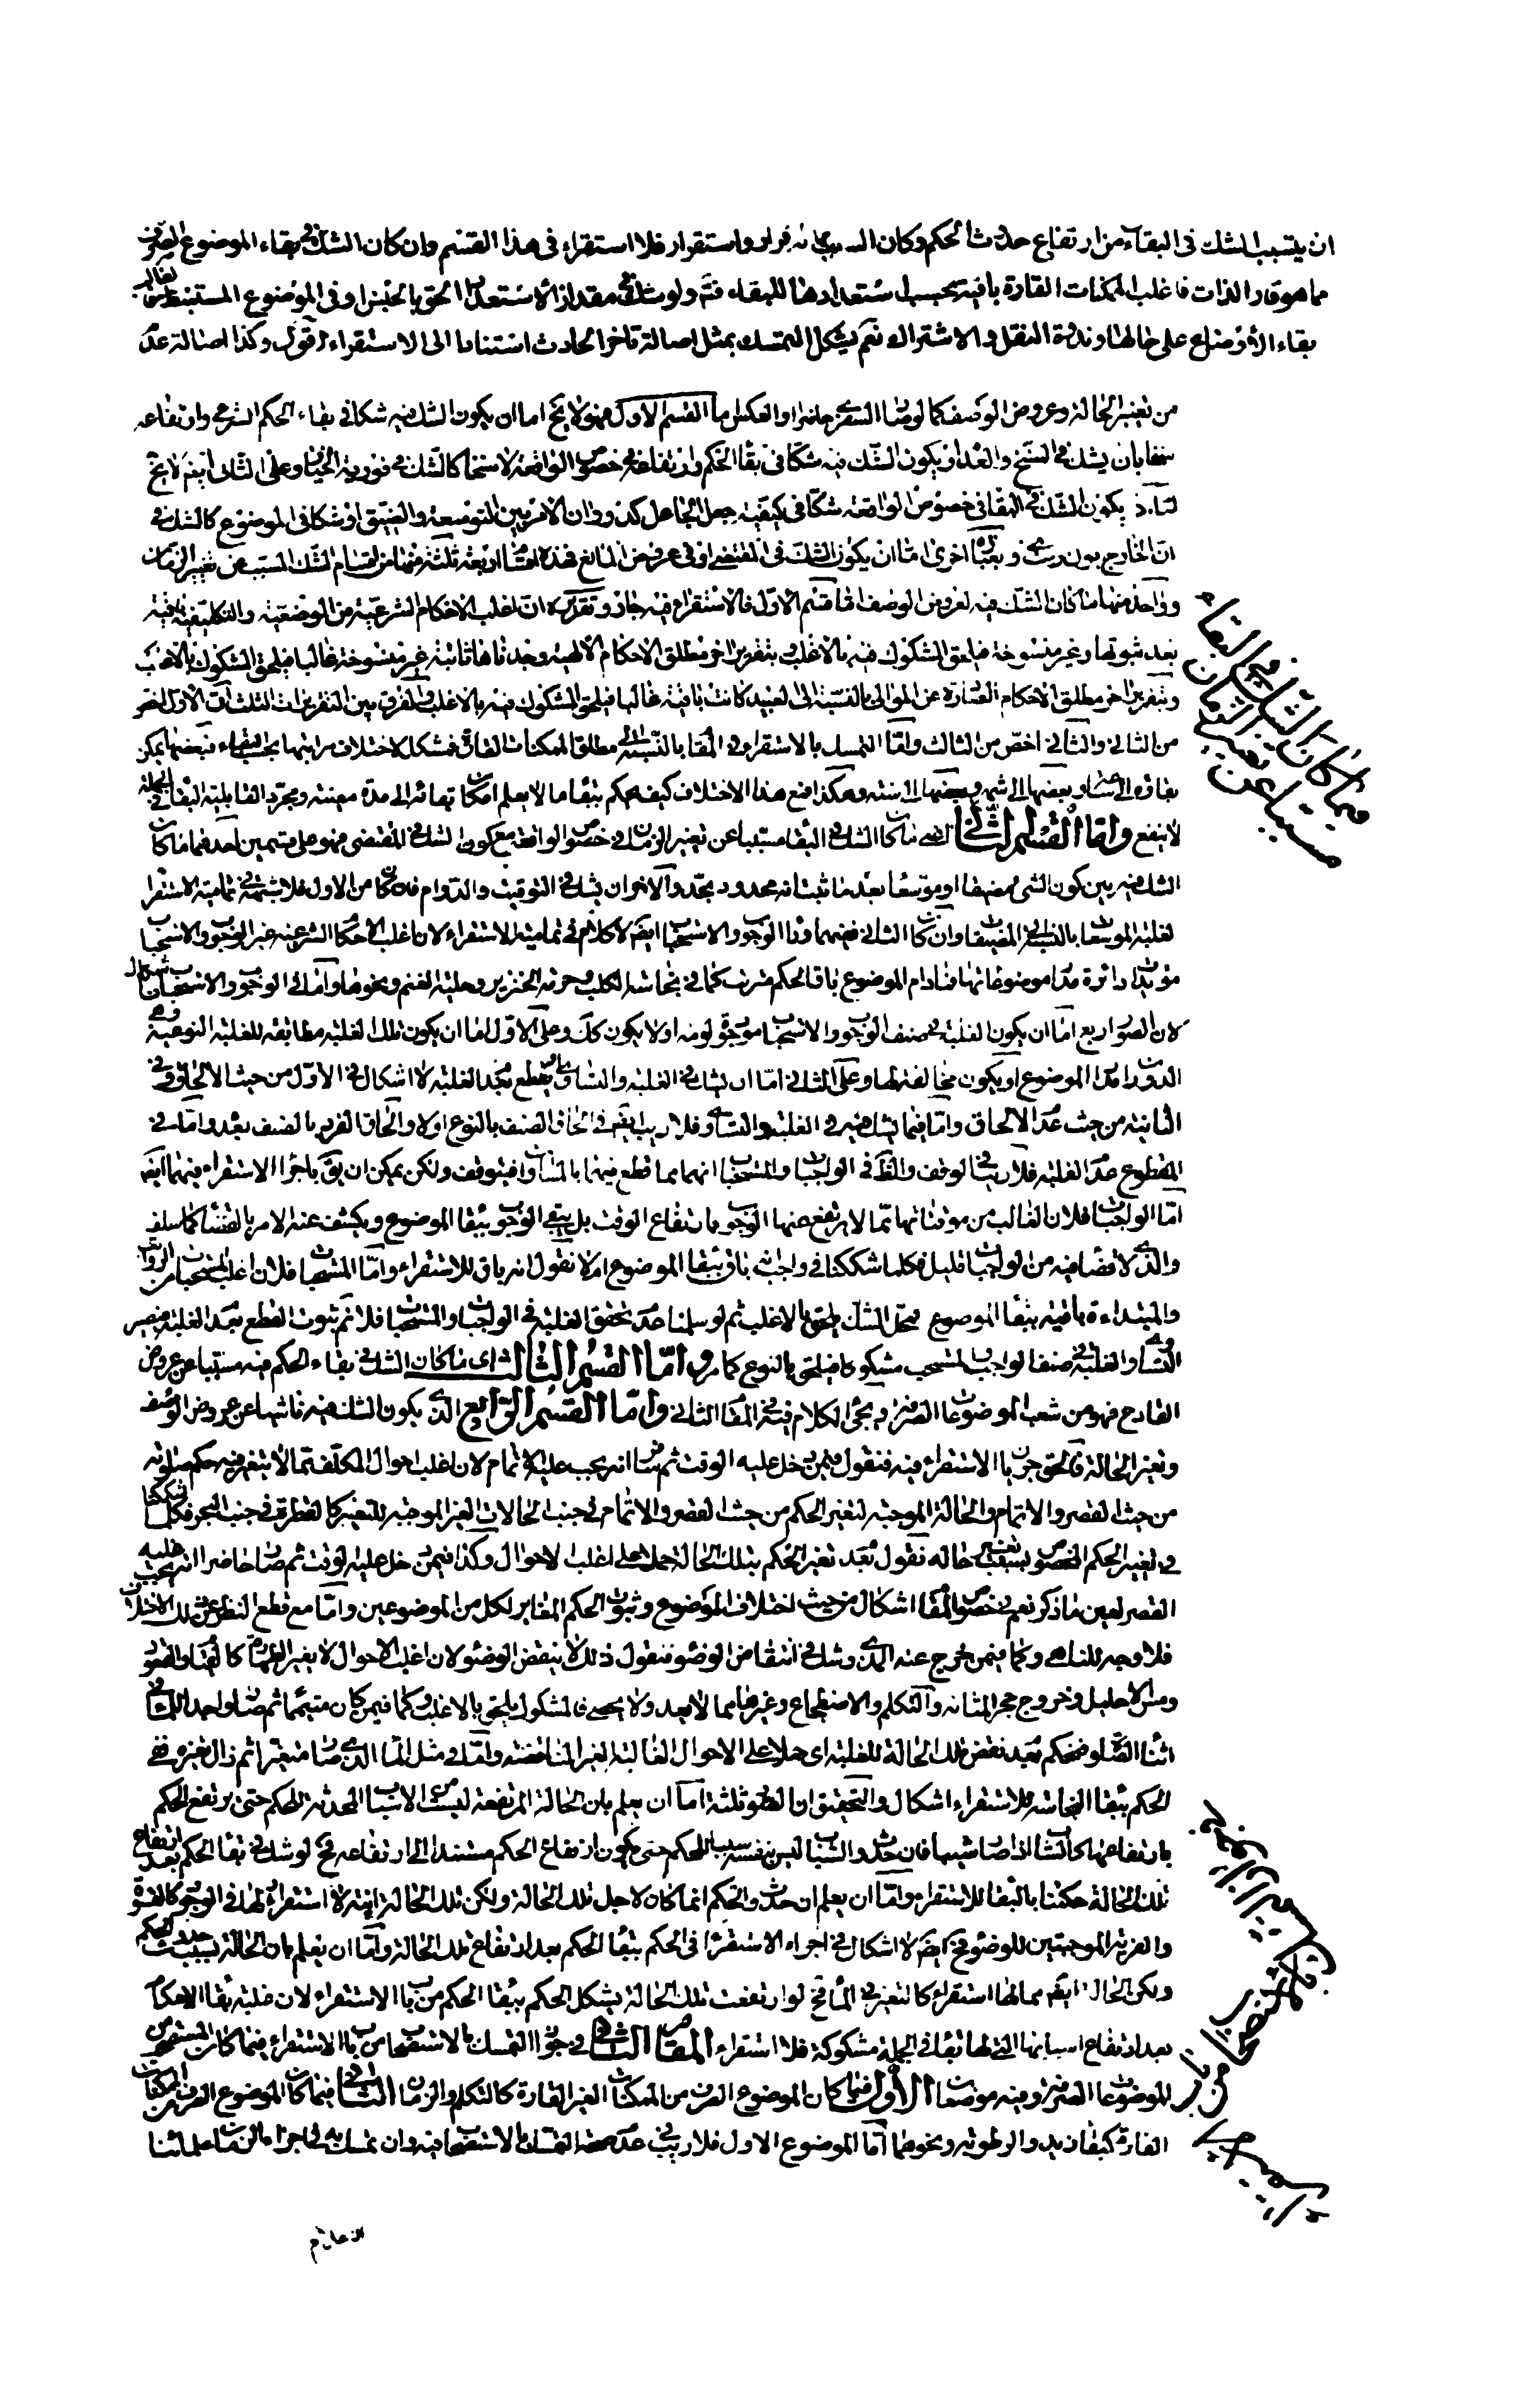 ان يتسبب الشك فى البقاء من ارتفاع حدث الحكم وكان استقرار فلا استقراء فى هذا القسم وان كان الشك فى بقاء الموضوع الصرف
مما هو قار الذات فاغلب الممكنات القارة باقية بحسب استعدادها للبقاء فتم ولو شك فى مقدار الاستعداد الحق بالجنس او فى الموضوع المستنبط فالغالب
بقاء الاوضاع على حالها وندرة النقل والاشتراك نعم يشكل التمسك بمثل اصالة تاخر الحادث استنادا الى الاستقراء اقول وكذا اصالة عدم
من تغير الحالة وعروض الوصف كما لو صار السفرى حاضرا او العكس اما القسم الاول فهو لا يخ اما ان يكون الشك فيه شكا فى بقاء الحكم الشرعى وارتفاعه
بان يشك فى النسخ والعدم او يكون الشك فيه شكا فى بقاء الحكم وارتفاعه فى خصوص الواقعة لا نسخا كالشك فى فورية الخيار وعلى الثانى ايضا لا يخ
يكون الشك فى البقاء فى خصوص الواقعة شكا فى كيفية جعل الجاعل كدوران الامر بين التوسعة والضيق او شكا فى الموضوع كالشك فى
ان الخارج بول وبعبارة اخرى اما ان يكون الشك فى المقتضى او فى عروض المانع فهذه اقسام اربعة ثلثة منها من اقسام الشك المسبب عن تغير الزمان
وواحد منها ما كان الشك فيه لعروض الوصف اما القسم الاول فالاستقراء فيه جار وتقريره ان اغلب الاحكام الشرعية من الوضعية والتكليفية باقية
بعد ثبوتها وغير منسوخة فيلحق المشكوك فيه بالاغلب وبتقرير اخر مطلق الاحكام الالهية وجدناها ثابتة غير منسوخة غالبا فيلحق المشكوك بالاغلب
وبتقرير اخر مطلق الاحكام الصادرة عن الموالى بالنسبة الى العبيد كانت باقية غالبا فيلحق المشكوك فيه بالاغلب والفرق بين التقريرات الثلث ان الاول اخص
من الثانى والثانى اخص من الثالث واما التمسك بالاستقراء فى المقام بالنسبة الى مطلق الممكنات القارة فمشكل لاختلاف مراتبها بحسب البقاء فبعضها يمكن
بقاؤه الى وبعضها الى شهر وبعضها الى سنة وهكذا فمع هذا الاختلاف كيف يحكم ببقاء ما لا يعلم امكان بقائه الى مدة معينة ومجرد القابلية للبقاء فى الجملة
لا ينفع واما القسم الثانى اعنى ما كان الشك فى البقاء مسببا عن تغير الزمان فى خصوص الواقعة مع كون الشك فى المقتضى فهو على قسمين احدهما ما كان
الشك فيه بين كون الشئ مضيقا او موسعا بعد ما ثبت انه محدود بحد والاخر ان يشك فى التوقيت والدوام فان كان من الاول فلا شبهة فى تمامية الاستقراء
لغلبة الموسعات بالنسبة الى المضيقات وان كان الثانى ففيما وراء الوجوب والاستحباب ايضا لا كلام فى تمامية الاستقراء لان اغلب الاحكام الشرعية غير الوجوب والاستحباب
دائرة مدار موضوعاتها فما دام الموضوع باقيا الحكم مترتب كما فى نجاسة الكلب وحرمة الخنزير وحلية الغنم ونحوها واما فى الوجوب والاستحباب فاشكال
لان الصور اربع اما ان يكون الغلبة فى صنف الوجوب والاستحباب موجودة او لا يكون كك وعلى الاول اما ان يكون تلك الغلبة مطابقة للغلبة النوعية وهى
الدوران مدار الموضوع او يكون مخالفة لها وعلى الثانى اما ان يشك فى الغلبة والتساوى او يقطع بعدم الغلبة لا اشكال فى الاول من حيث الالحاق وفى
الثانية من حيث عدم الالحاق واما فيما يشك فيه فى الغلبة والتساوى فلا ريب ايضا فى الحاق الصنف بالنوع اولا والحاق الفرد بالصنف بعده واما فى
المقطوع عدم الغلبة فلا ريب فى التوقف والظ فى الواجبات والمستحبات انهما مما قطع فيهما بالتساوى فيتوقف ولكن يمكن ان يق باجراء الاستقراء فيهما ايضا
اما الواجبات فلان الغالب من موقتاتها مما لا يرتفع عنها الوجوب بارتفاع الوقت بل يبقى الوجوب ببقاء الموضوع ويكشف عنه الامر بالقضاء كما سلف
والذى لا قضاء فيه من الواجبات قليل فكلما شككنا فى واجب انه باق ببقاء الموضوع ام لا نقول انه باق للاستقراء واما المستحبات فلان اغلب المستحبات من
والمبتداءة باقية ببقاء الموضوع فمحل الشك يلحق بالاغلب ثم لو سلمنا عدم تحقق الغلبة فى الواجبات والمستحبات فلا نم ثبوت القطع بعدم الغلبة فيصير
التساوى والغلبة فى صنف الواجب والمستحب مشكوكا فيلحق بالنوع كما مر واما القسم الثالث اى ما كان الشك فى بقاء الحكم فيه مسببا عن عروض
القادح فهو من شعب الموضوعات الصرفة ويجئ الكلام فيه فى المقام الثانى واما القسم الرابع الذى يكون الشك فيه ناشيا عن عروض الوصف
وتغير الحالة فالحق جريان الاستقراء فيه فنقول فيمن دخل عليه الوقت ثم سافر انه يجب عليه الاتمام لان اغلب احوال المكلف مما لا يتغير فيه حكم صلوته
من حيث القصر والاتمام والحالة الموجبة لتغير الحكم من حيث القصر والاتمام فى جنب الحالات الغير الموجبة للتغير كالقطرة فى جنب البحر فكلما شككنا
فى تغير الحكم المخصوص بسبب تغير حالة نقول بعدم تغير الحكم بتلك الحالة حملا على اغلب الاحوال وكذا فيمن دخل عليه الوقت ثم صار حاضرا انه يجب عليه
القصر لعين ما ذكر نعم فى خصوص المقام اشكال من حيث اختلاف الموضوع وثبوت الحكم المغاير لكل من الموضوعين واما مع قطع النظر عن ذلك الاختلاف
فلا وجه للتامل وكما فيمن خرج عنه المذى وشك فى انتقاض الوضوء فنقول ذلك لا ينقض الوضوء لان اغلب الاحوال لا يغير الطهارة كالقيام والقعود
ومس الاحليل وخروج حجر المثانة والتكلم والاضطجاع وغيرها مما لا يعد ولا يحصى فالمشكوك يلحق بالاغلب وكما فيمن كان متيمما ثم صار واجد الماء فى
اثناء الصلوة فيحكم بعدم نقض تلك الحالة للغلبة اى حملا على الاحوال الغالبة الغير الناقضة واما فى مثل الماء الذى صار متغيرا ثم زال تغيره ففى
الحكم ببقاء النجاسة للاستقراء اشكال والتحقيق ان الصور ثلثة اما ان يعلم بان الحالة المرتفعة ليست من الاسباب المحدثة للحكم حتى يرتفع الحكم
بارتفاعها كالشاب اذا صار شيبا فان حدوث الشباب ليس بنفسه سببا للحكم حتى يكون ارتفاع الحكم مستندا الى ارتفاعه فح لو شك فى بقاء الحكم بعد ارتفاع
تلك الحالة حكمنا بالبقاء للاستقراء واما ان يعلم ان حدوث الحكم انما كان لاجل تلك الحالة ولكن تلك الحالة انية لا استقرار لها فى الوجود
الموجبتين للوضوء فح ايضا لا اشكال فى اجراء الاستقراء فى الحكم ببقاء الحكم بعد ارتفاع تلك الحالة واما ان يعلم بان الحالة سبب حدوث الحكم
ولكن الحالة ايضا مما لها استقرار كالتغير فى الماء فح لو ارتفعت تلك الحالة يشكل الحكم ببقاء الحكم من باب الاستقراء لان غلبة بقاء الاحكام
بعد ارتفاع اسبابها التى لها بقاء فى الجملة مشكوكة فلا استقراء المقام الثانى فى جواز التمسك بالاستصحاب من باب الاستقراء فيما كان المستصحب من
الموضوعات الصرفة وفيه موضعان الاول فيما كان الموضوع الصرف من الممكنات الغير القارة كالتكلم والزمان الثانى فيما كان الموضوع الصرف من الممكنات
القارة كبقاء زيد والرطوبة ونحوهما اما الموضوع الاول فلا ريب فى عدم صحة التمسك بالاستصحاب فيه وان تمسك به فى اجزاء الزمان علمائنا
فيما كان الشك فى البقاء
مسببا عن تغير الزمان